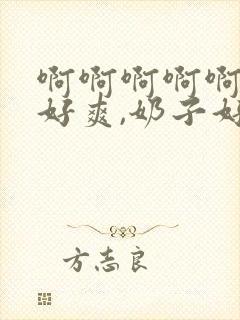 啊啊啊啊啊
好爽,奶子好
方志良